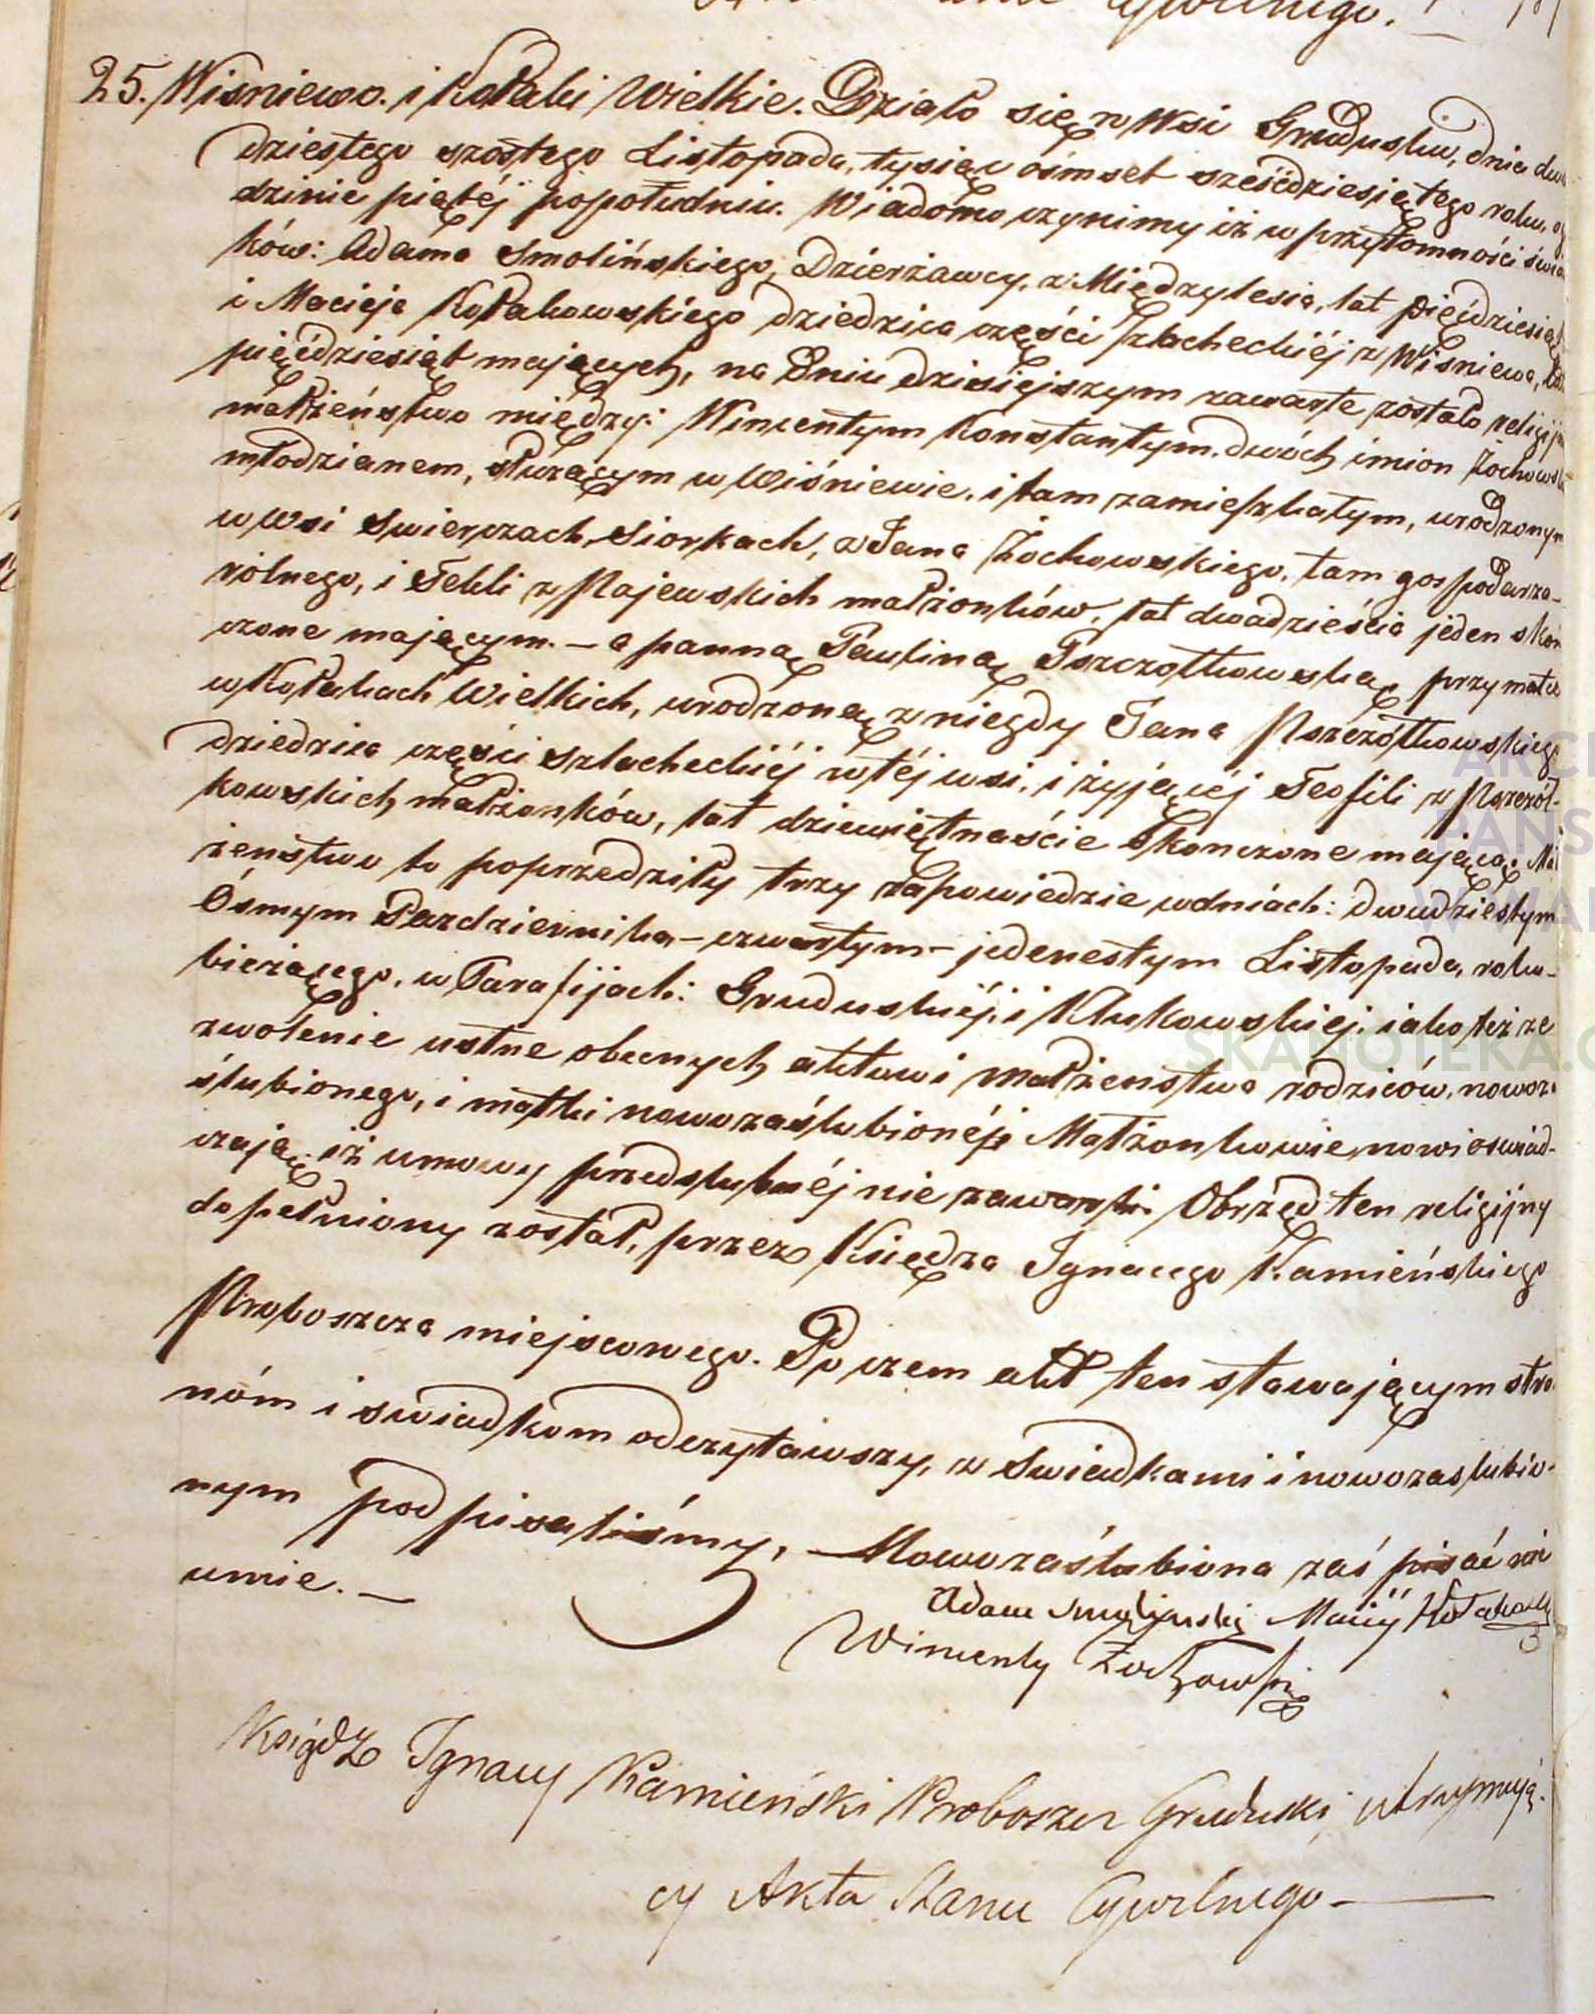 Cywilnego. —
25. Wisniewo. i Kołaki Wielkie. Działo się w Wsi Grudusku, dnia dwu
dziestego szóstego Listopada, tysiąc ośmset sześćdziesiętego roku, og
dzinie piątéj popołudniu. Wiadomo czynimy iż w przytomności świa
ków: Adama Smolińskiego, Dzierżawcy, z Międzylesia, lat pięćdziesiąt
i Macieja Kołakowskiego dziedzica części szlacheckiéj z Wisniewa, lat
pięćdziesiąt mających, na dniu dzisiejszym zawarte zostało religijn
małżeństwo między: Wincentym Konstantym, dwóch imion Żochowsk
młodzianem, służącym w Wiśniewie, i tam zamieszkałym, urodzonym
w wsi Swierczach, Siorkach, z Jana Żochowskiego, tam gospodarza
rolnego, i Tekli z Majewskich małżonków, lat dwadzieścia jeden skoń
czone mającym. — a panną Pauliną Pszczółkowską, przy matce
w Kołakach Wielkich, urodzoną z niegdy Jana Pszczółkowskiego
dziedzica części szlacheckiéj w téj wsi, i żyjącéj Teofili z Pszczół-
kowskich małżonków, lat dziewiętnaście skonczone mającą. Mał
żeństwo to poprzedziły trzy zapowiedzie w dniach: dwudziestym
Ósmym Pazdziernika, — czwartym — jedenestym Listopada, roku —
bieżącego, w Parafijach: Gruduskiéj, i Klukowskiej. iako też ze
zwolenie ustne obecnych aktowi małżenstwa rodziców, nowoza
ślubionego, i matki nowozaślubionéj. Małżonkowie nowi oswiad-
czają, iż umowy przedslubnéj nie zawarli. Obrzęd ten religijny
dopełniony został, przez Księdza Ignacego Kamieńskiego
Proboszcza miejscowego. Po czem akt ten stawającym stro
nóm i swiadkom odczytawszy, z swiadkami i nowozaslubio-
nym podpisaliśmy, — Nowozaślubiona zaś pisać nie
umie. —
Adam Smolinski Maciéj Kołakowski
Wincenty Żochowski
Ksiądz Ignacy Kamieński Proboszcz Gruduski, utrzymują-
cy Akta Stanu Cywilnego —
ARCH
PAŃS
W WAR
SKANOTEKA.G